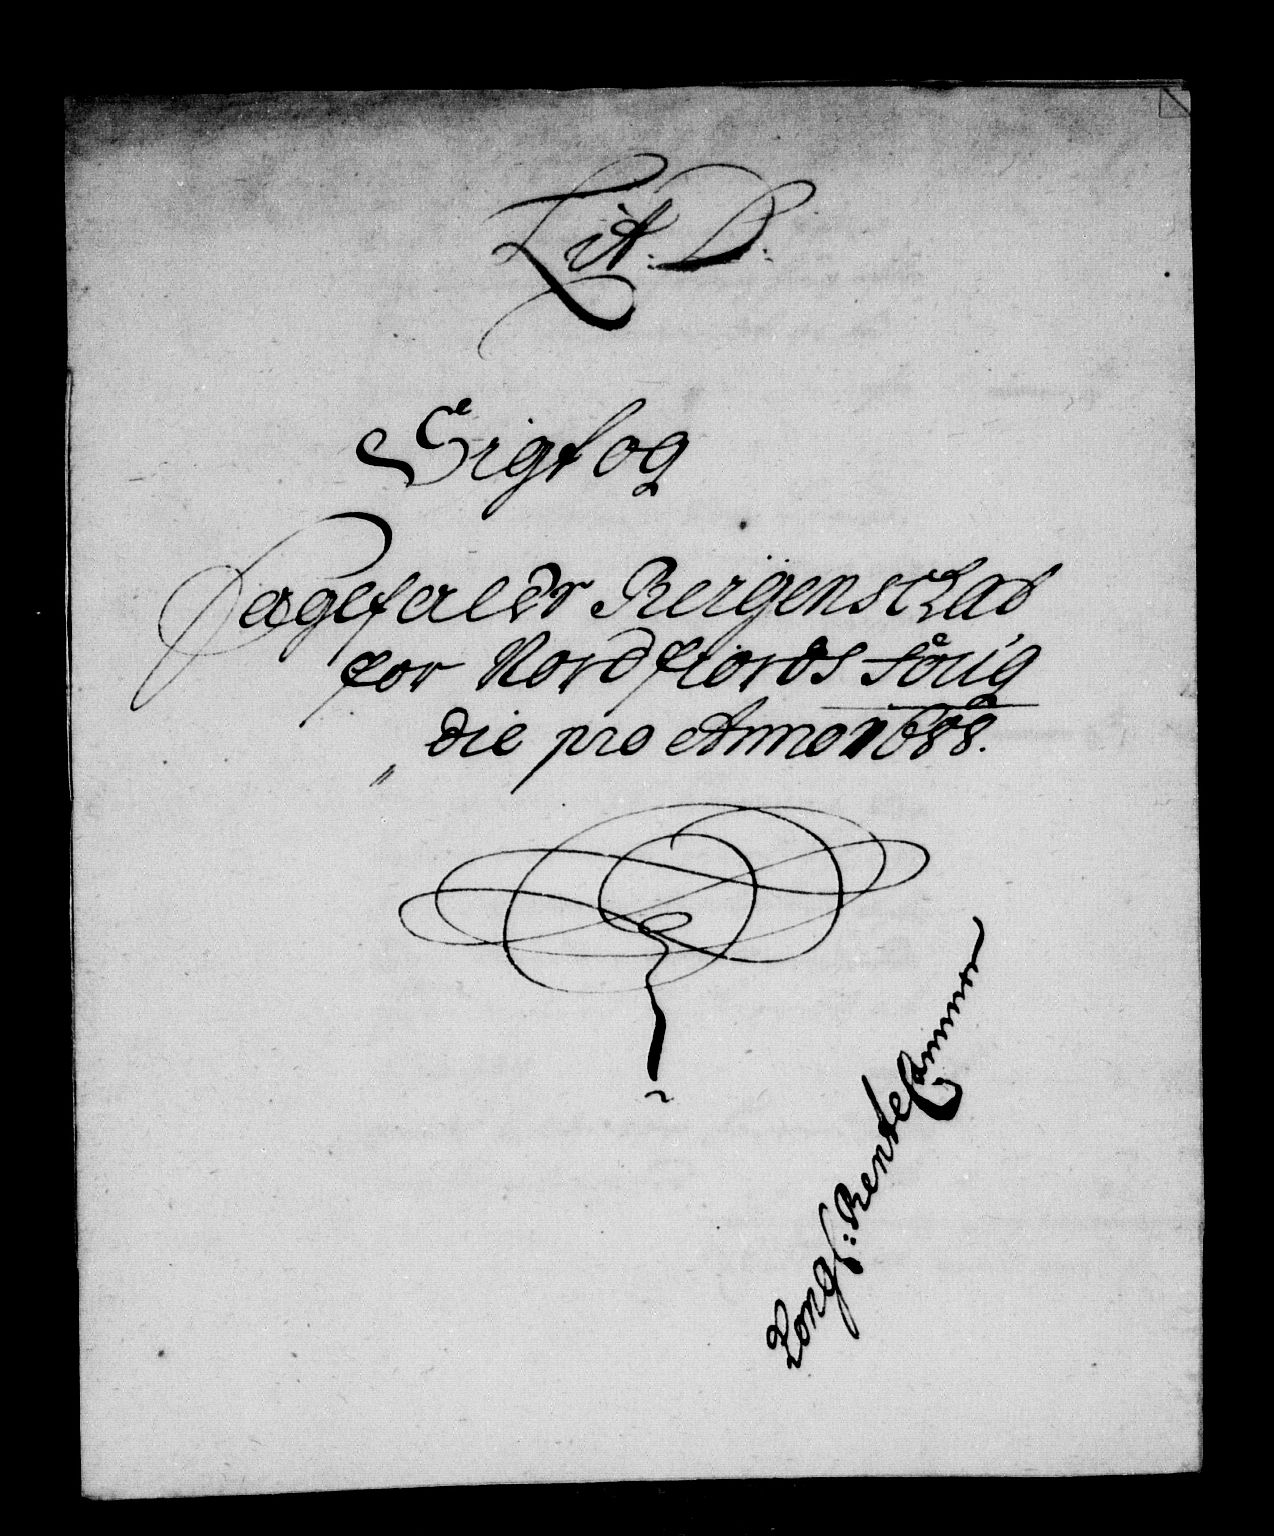 Lit. D:
Sigt og
Sagefalds Regenschab
for Nordfiords fÃ¸rig
die pro Anno 1688.
Kongl: Rente Cammer